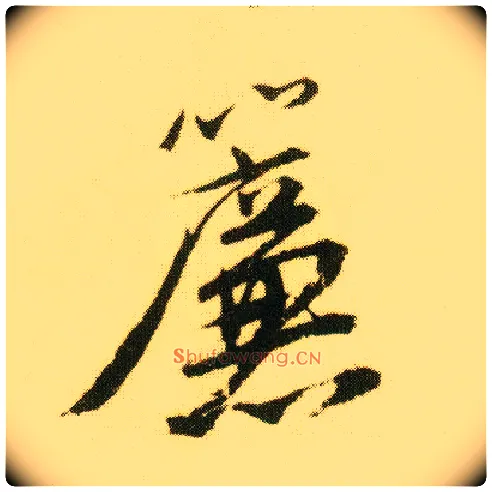 簾
Shufawang.CN